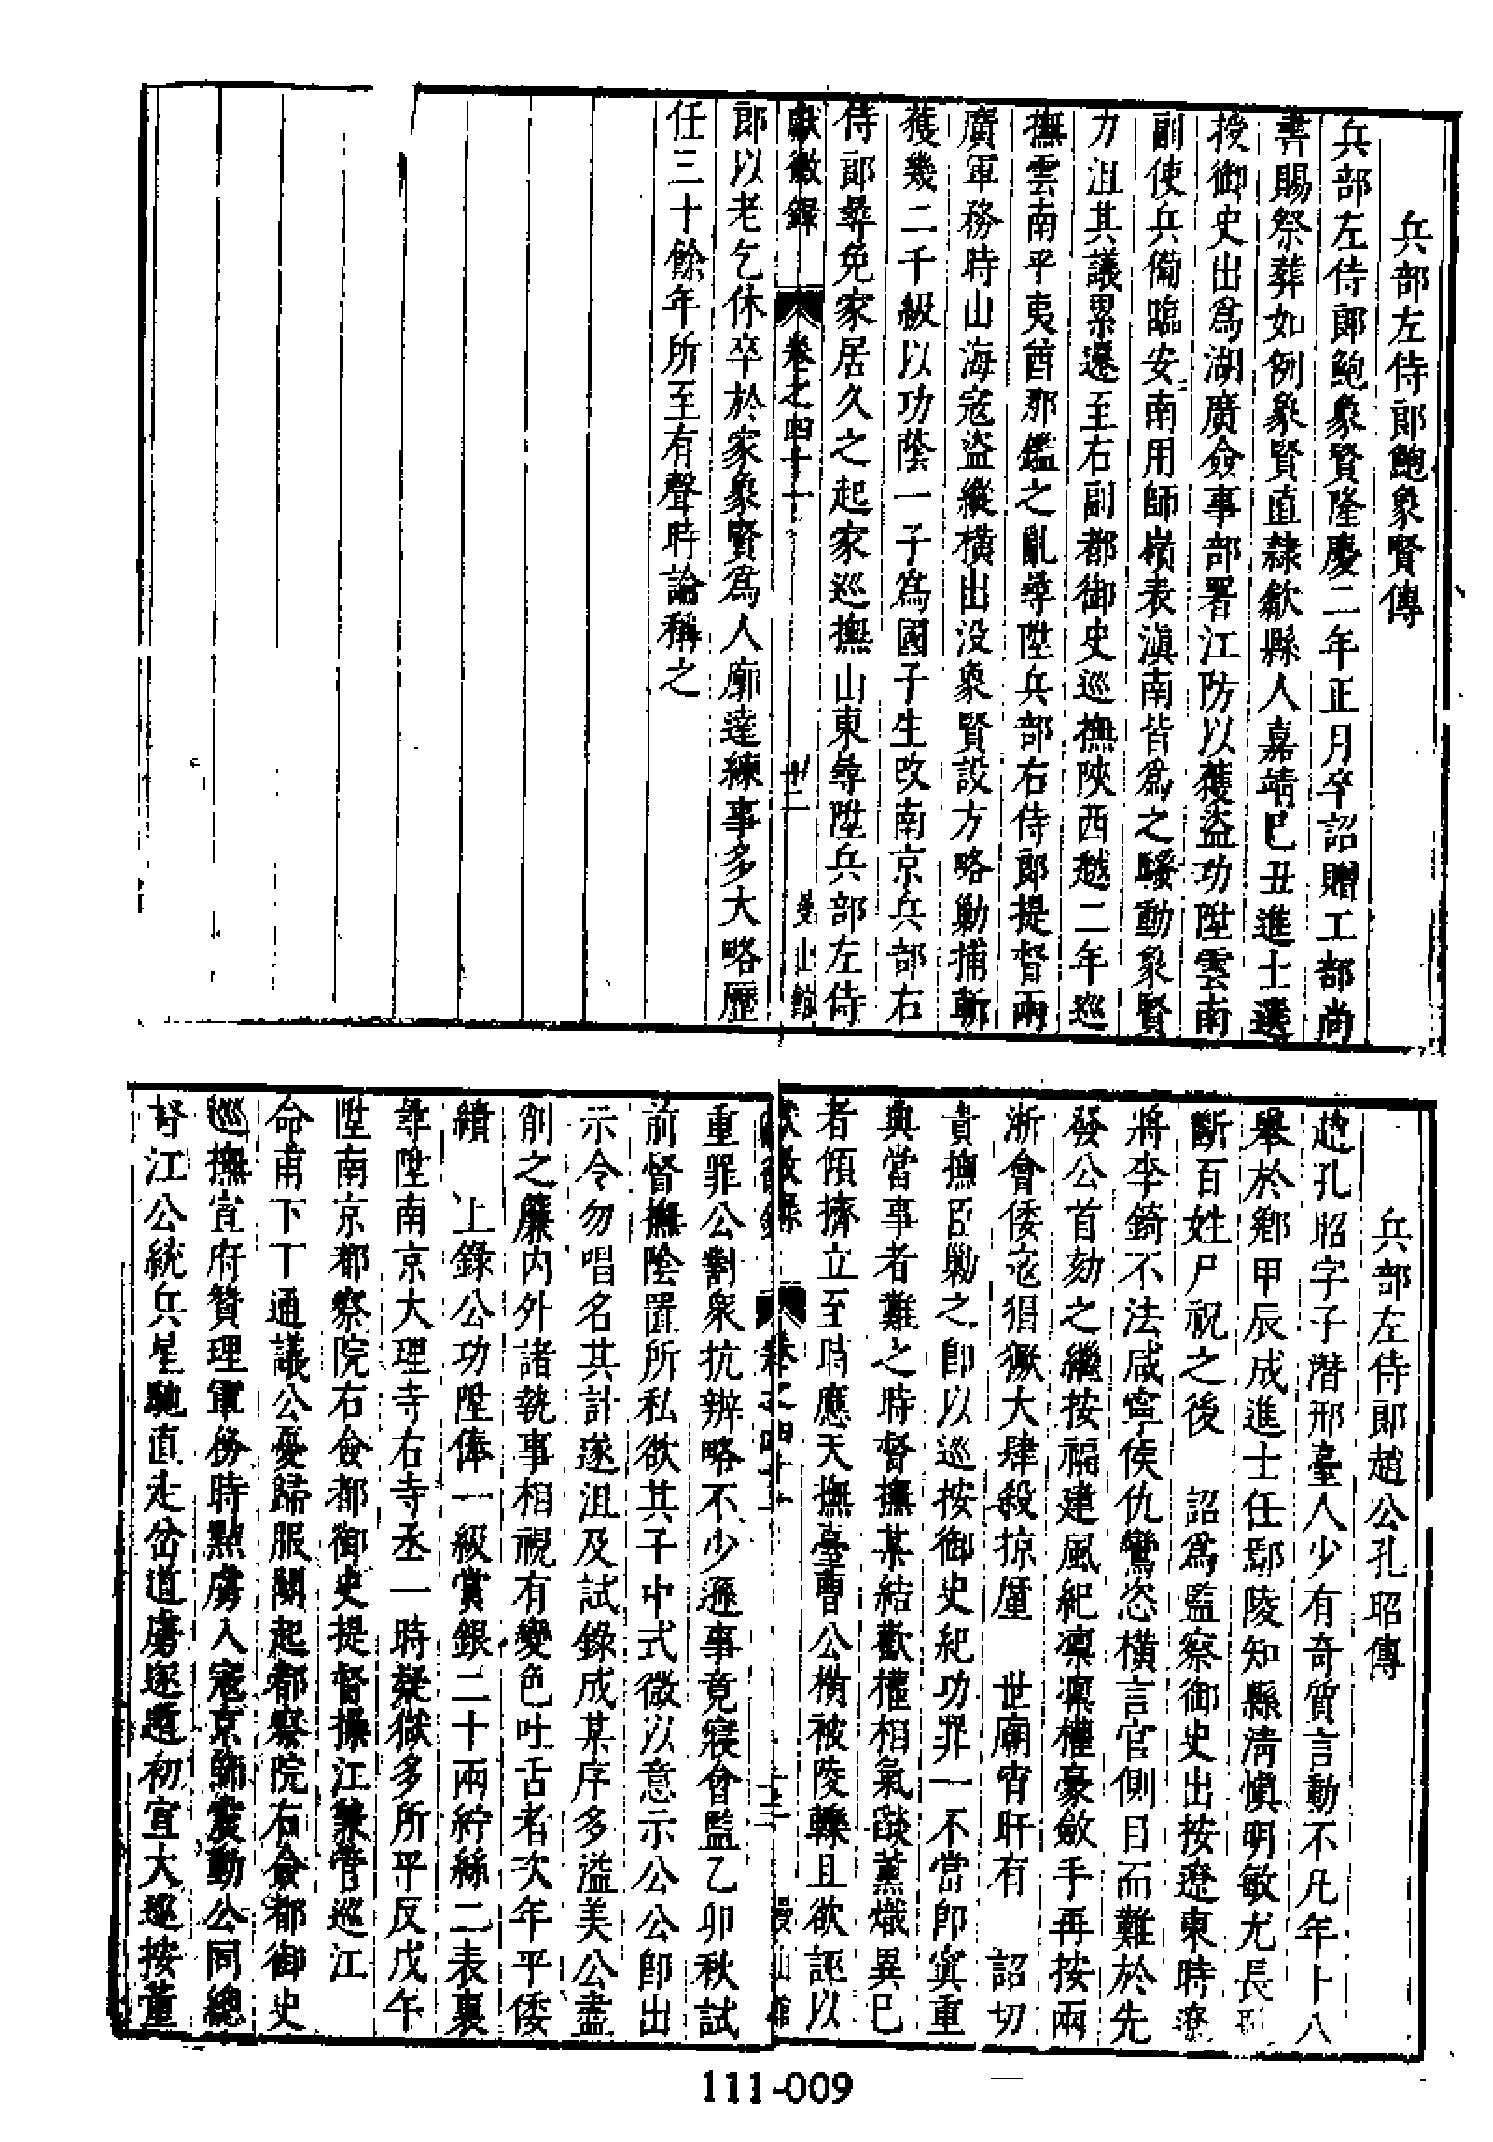 兵部左侍郎鮑象賢傳
兵部左侍郎鮑象賢隆慶二年正月卒詔贈工部尚
書賜祭葬如例象賢直隸歙縣人嘉靖巳丑進士選
授御史出爲湖廣僉事部署江防以獲盜功陞雲南
副使兵備臨安南用師嶺表滇南皆爲之騷動象賢
力沮其議累遷至右副都御史巡撫陝西越二年巡
撫雲南平夷酋那鑑之亂尋陞兵部右侍郎提督兩
廣軍務時山海寇盜縱橫出没象賢設方略勦捕斬
獲幾二千級以功蔭一子爲國子生改南京兵部右
侍郎尋免家居久之起家巡撫山東尋陞兵部左侍
獻徵録 卷之四十一 十二 曼山館
郎以老乞休卒於家象賢爲人廓達練事多大略歷
任三十餘年所至有聲時論稱之
兵部左侍郎趙公孔昭傳
趙孔昭字子潛邢臺人少有奇質言動不凡年十八
舉於鄉甲辰成進士任鄢陵知縣淸愼明敏尤長
斷百姓尸祝之後 詔爲監察御史出按遼東時遼
將李錡不法咸寧侯仇鸞恣橫言官側目而難於先
發公首劾之繼按福建風紀凛凛權豪斂手再按兩
浙會倭寇猖獗大肆殺掠厪 世廟宵旰有 詔切
責撫臣勦之即以巡按御史紀功罪一不當即寘重
典當事者難之時督撫某結歡權相氣談薰熾異巳
者傾擠立至時應天撫臺曹公被陵轢且欲誣以
獻徵録 卷之四十一 十三 曼山館
重罪公對衆抗辨略不少遜事竟寢會監乙卯秋試
前督撫陰置所私欲其子中式微以意示公公即出
示令勿唱名其計遂沮及試錄成某序多溢美公盡
削之簾内外諸執事相視有變色吐舌者次年平倭
績 上錄公功陞俸一級賞銀二十兩紵絲二表裏
尋陞南京大理寺右寺丞一時疑獄多所平反戊午
陞南京都察院右僉都御史提督操江兼管巡江
命甫下丁通議公憂歸服闋起都察院右僉都御史
巡撫宣府贊理軍務時黠虜入寇京師震動公同總
督江公統兵星馳直走岔道虜逐遁初宣大巡按董
111-009